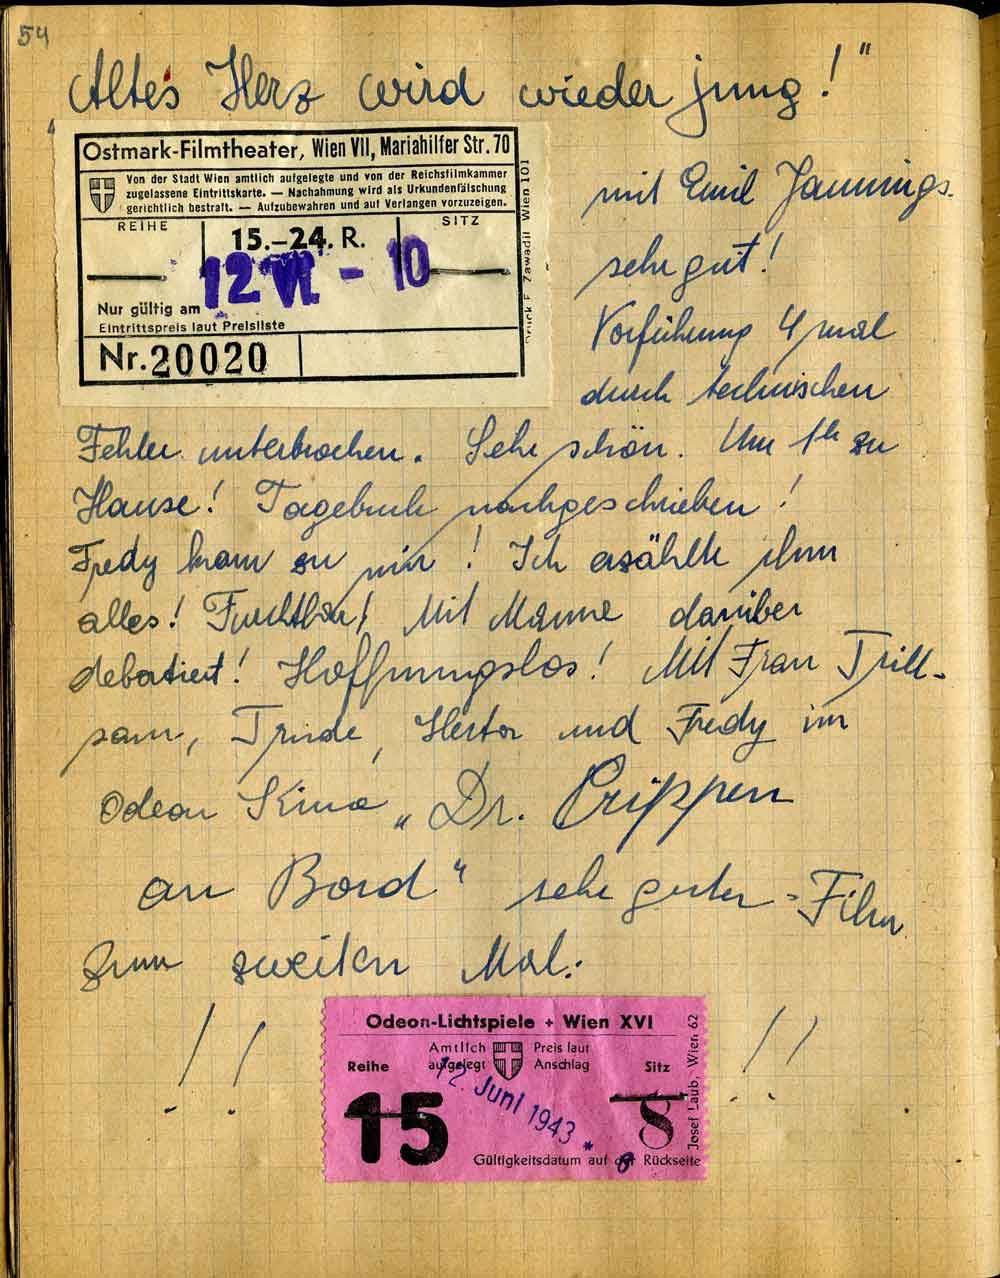 54
„Altes Herz wird wieder jung!"
Ostmark-Filmtheater, Wien VII, Mariahilfer Str. 70
Von der Stadt Wien amtlich aufgelegte und von der Reichsfilmkammer
zugelassene Eintrittskarte. — Nachahmung wird als Urkundenfälschung
gerichtlich bestraft. — Aufzubewahren und auf Verlangen vorzuzeigen.
REIHE
15.–24. R.
SITZ
12 VI. - 10
Nur gültig am
Eintrittspreis laut Preisliste
Nr. 20020
Druck F. Zawadil Wien 101
mit Emil Jannings.
sehr gut!
Vorführung 4 mal
durch technischen
Fehler unterbrochen. Sehr schön. Um 1h zu
Hause! Tagebuch nachgeschrieben!
Fredy kam zu mir! Ich erzählte ihm
alles! Furchtbar! Mit Mamme darüber
debatiert! Hoffnungslos! Mit Frau Trill-
sam, Trude, Herta und Fredy im
Odeon Kino „Dr. Crippen
an Bord" sehr guter Film
zum zweiten Mal.
!! !!
Odeon-Lichtspiele + Wien XVI
Amtlich aufgelegt
Preis laut Anschlag
Reihe
Sitz
15
8
12. Juni 1943 *
Gültigkeitsdatum auf der Rückseite
Josef Laub, Wien 62